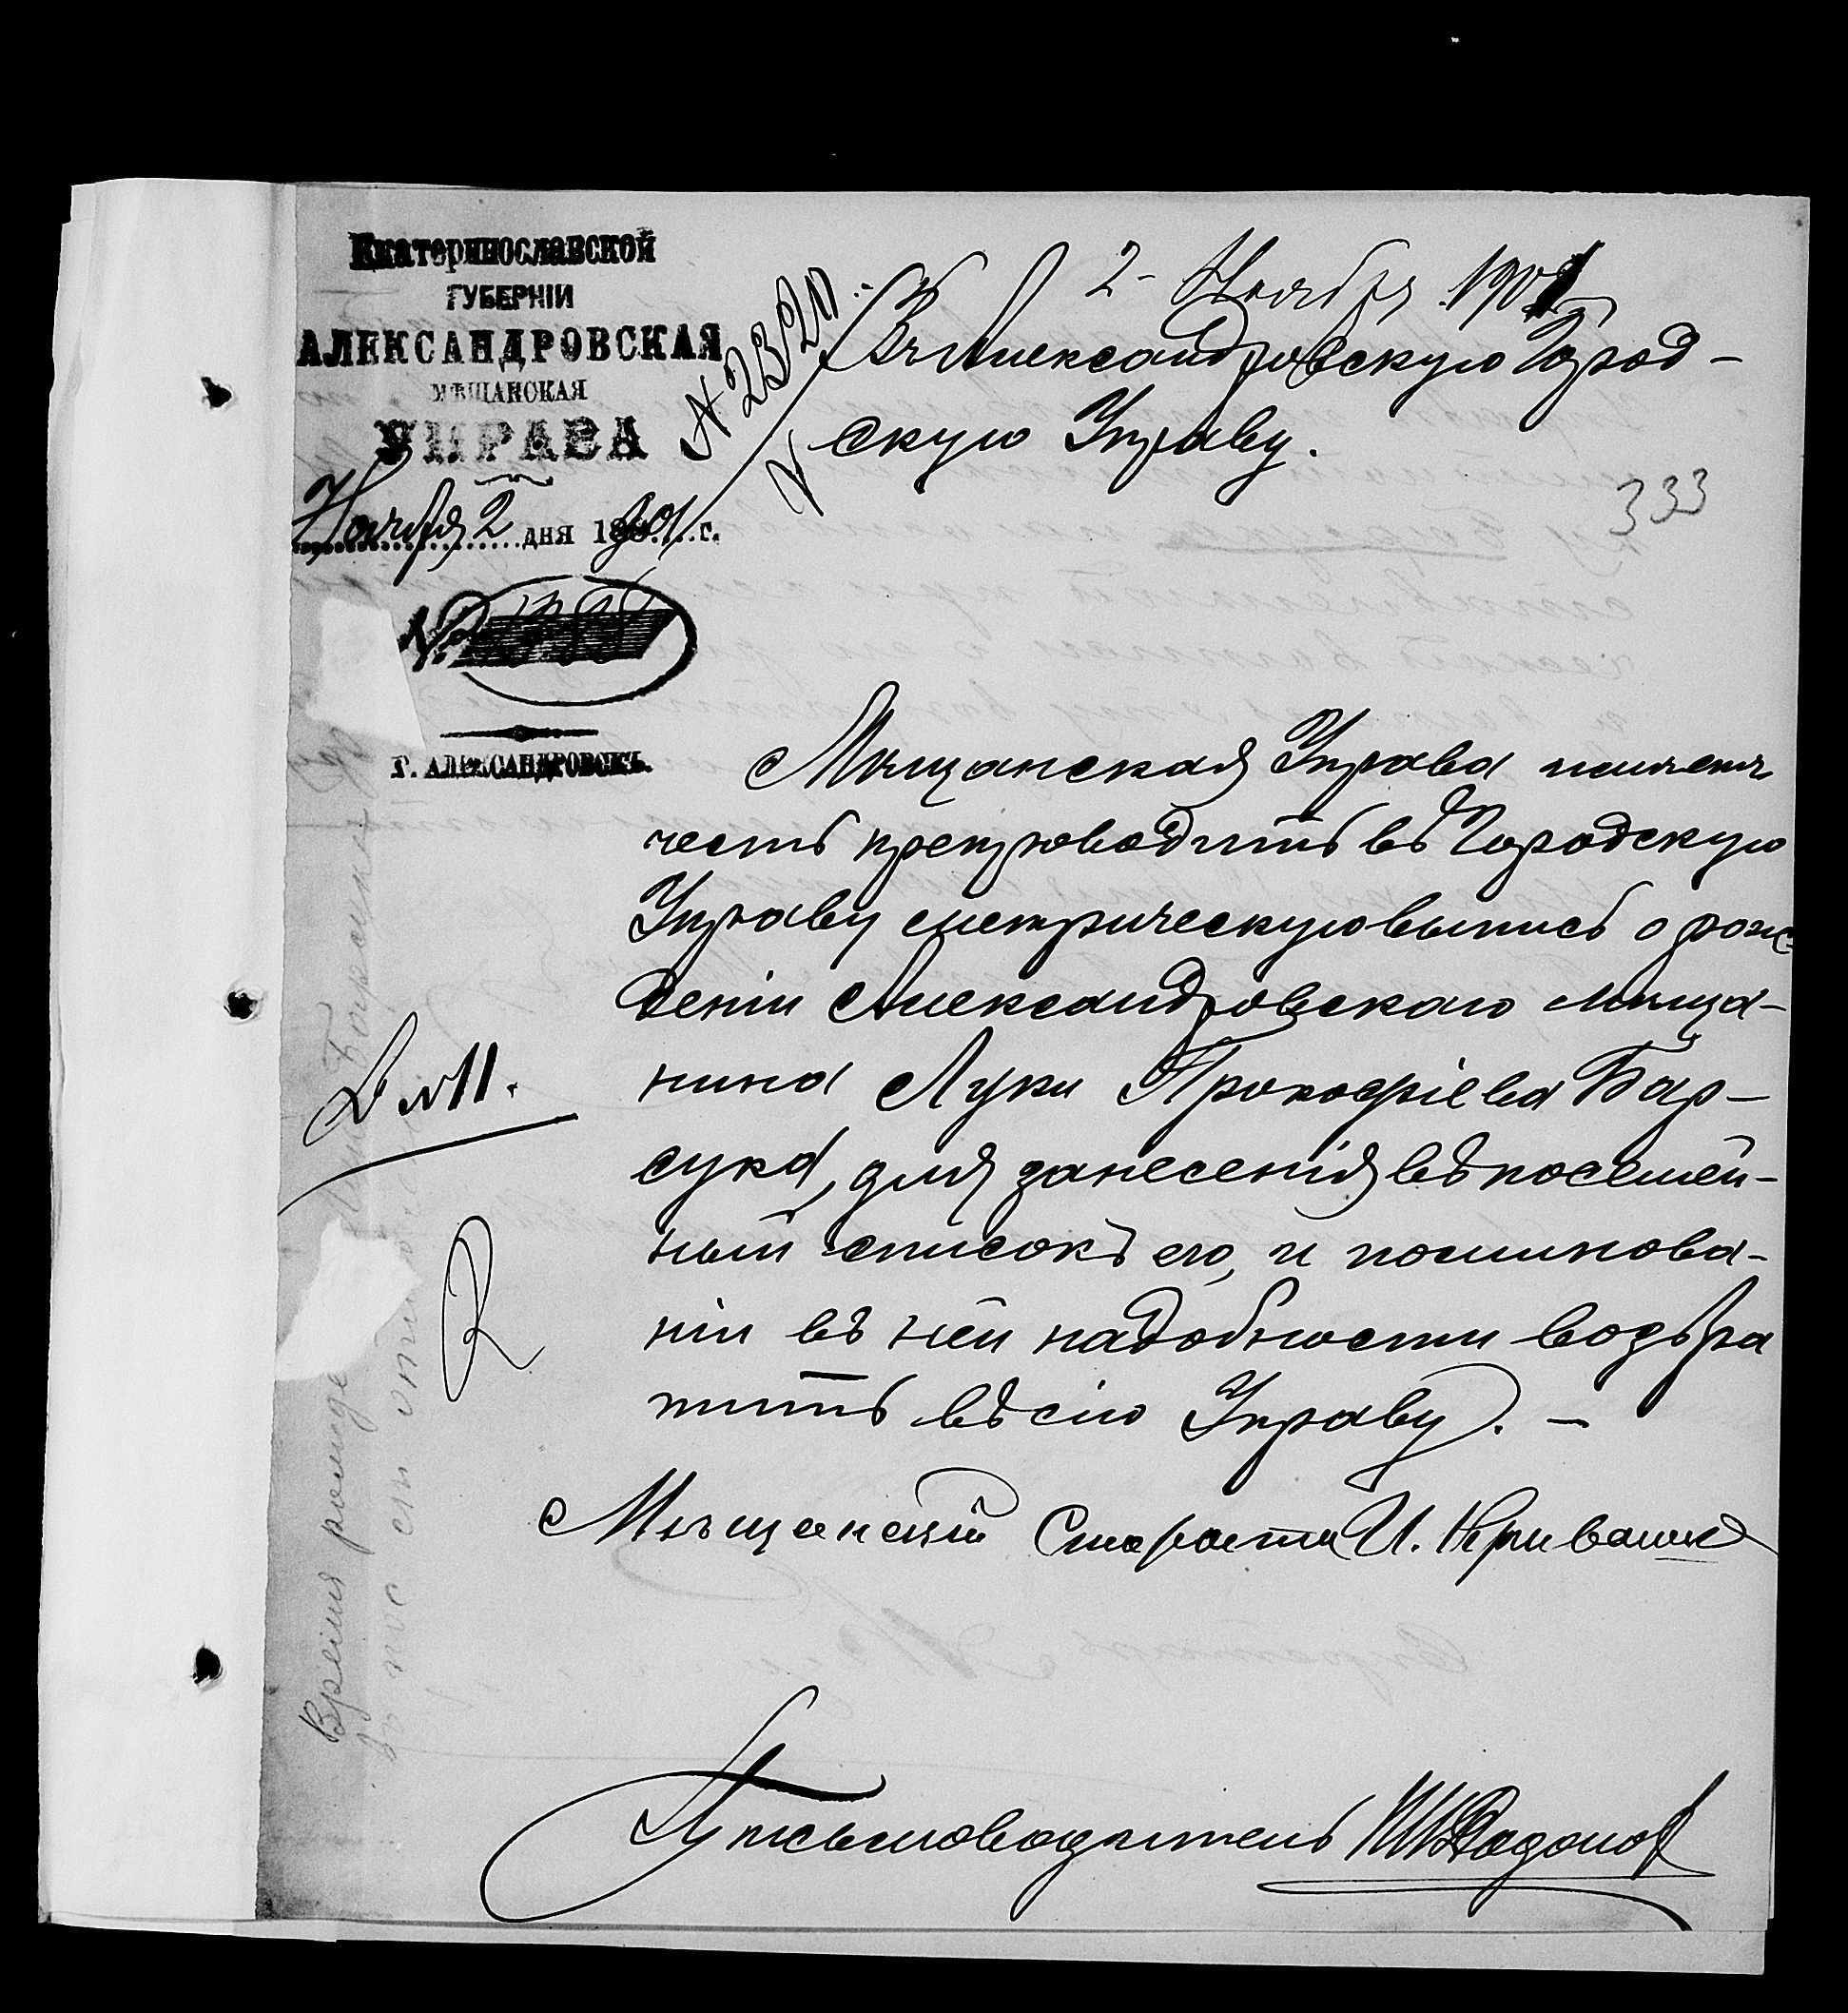 Екатеринославской
ГУБЕРНІИ
АЛЕКСАНДРОВСКАЯ
МѢЩАНСКАЯ
УПРАВА
Ноября 2 дня 1901 г.
№
Г. АЛЕКСАНДРОВСКЪ.
№ 2320
2 Ноября 1901
Въ Александровскую Город-
скую Управу.
333
Мѣщанская Управа имѣетъ
честь препроводить въ Городскую
Управу метрическую выпись о рож-
деніи Александровскаго мѣща-
нина Луки Прокофіева Бар-
сука, для занесенія въ посемей-
ный списокъ его, и по минова-
ніи въ ней надобности возвра
тить въ сію Управу. —
Мѣщанскій Староста И.
Письмоводитель
Время рожде